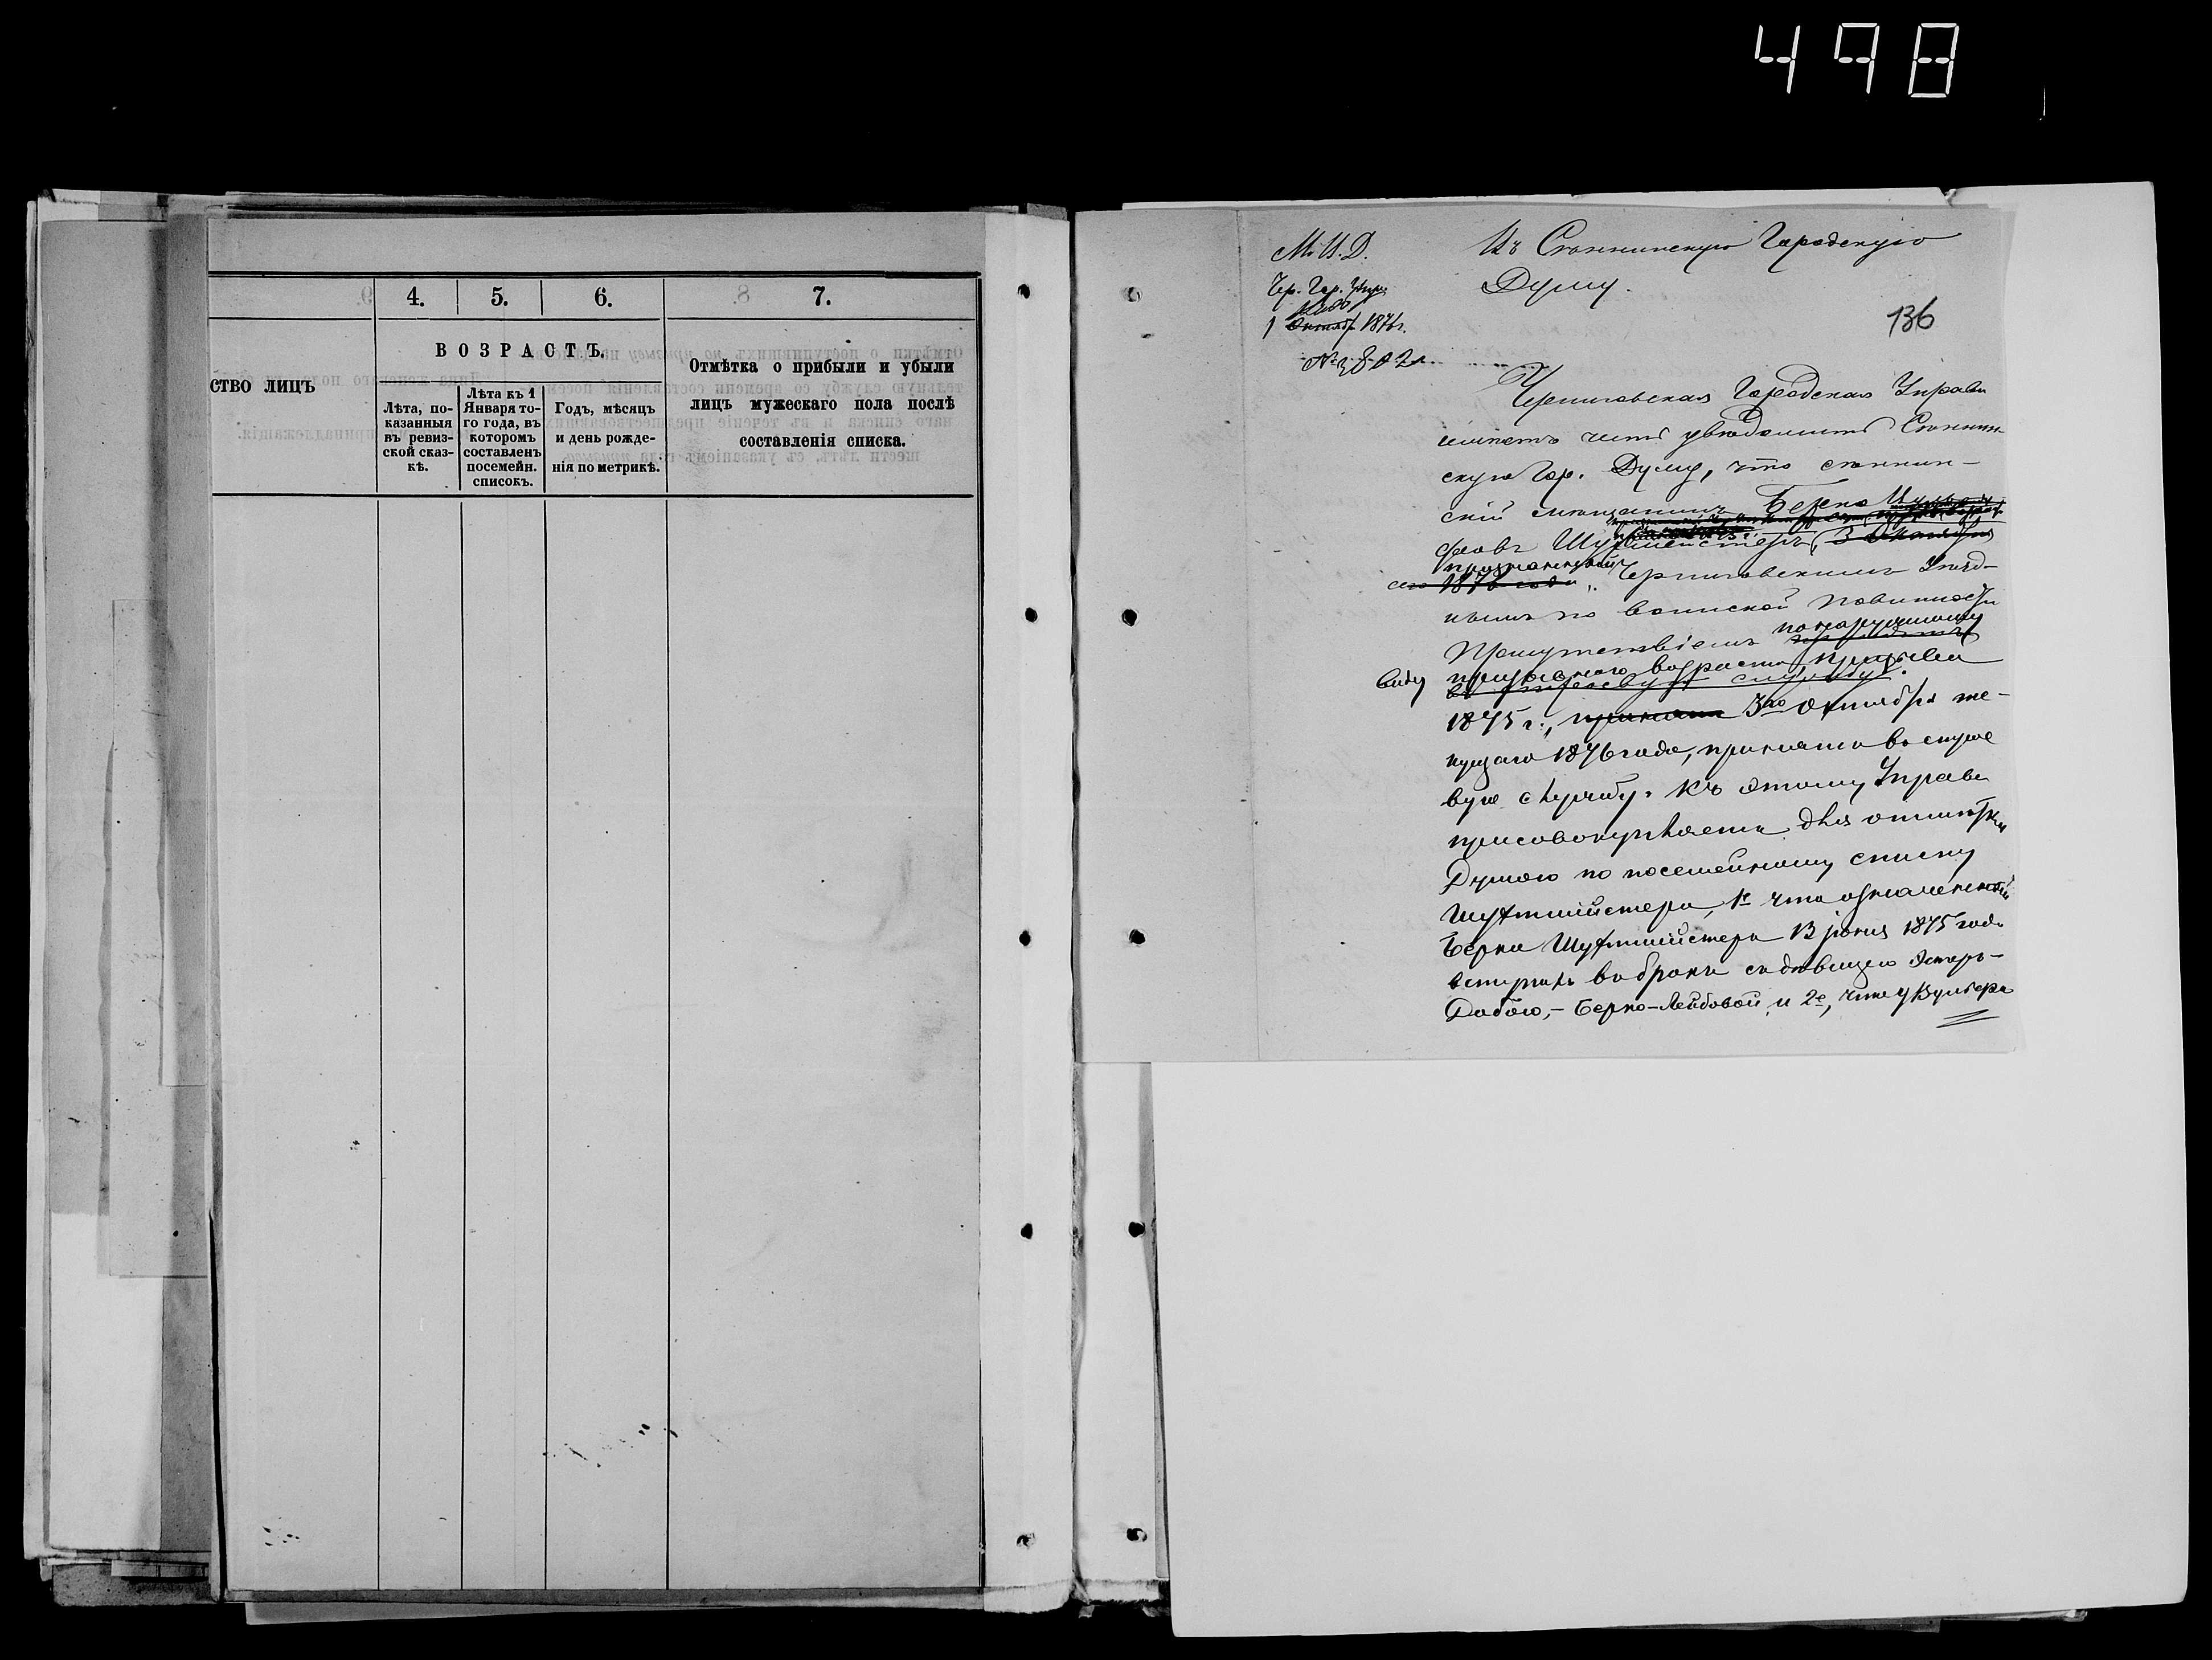 498
4.
5.
6.
7.
СТВО ЛИЦЪ
ВОЗРАСТЪ.
Лѣта, по-
казанныя
въ ревиз-
ской сказ-
кѣ.
Лѣта къ 1
Января то-
го года, въ
которомъ
составленъ
посемейн.
списокъ.
Годъ, мѣсяцъ
и день рожде-
нія по метрикѣ.
Отмѣтка о прибыли и убыли
лицъ мужескаго пола послѣ
составленія списка.
М. В. Д.
Чер. Гор. Упр.
1 Октябр 1876 г.
№ 3802
Въ Городскую
Думу.
136
Черниговская Городская Управа
имѣетъ честь увѣдомить
скую Гор. Думу, что
скій мѣщанинъ Берка
3 Октября
1876 года Черниговскимъ Уѣзд-
нымъ по воинской повинности
Присутствіемъ по наружному
виду призывнаго возраста, призыва
службу.
1875 г., 3го Октября те-
кущаго 1876 года, принятъ въ
вую службу. Къ этому Управа
присовокупляетъ для отмѣтки
Думою по посемейному списку
1е что означенный
Берка 13 іюня 1875 года
вступилъ въ бракъ съ дѣвицею Эстеръ-
Добою,- Берко-Лейбовой, и 2е, что у